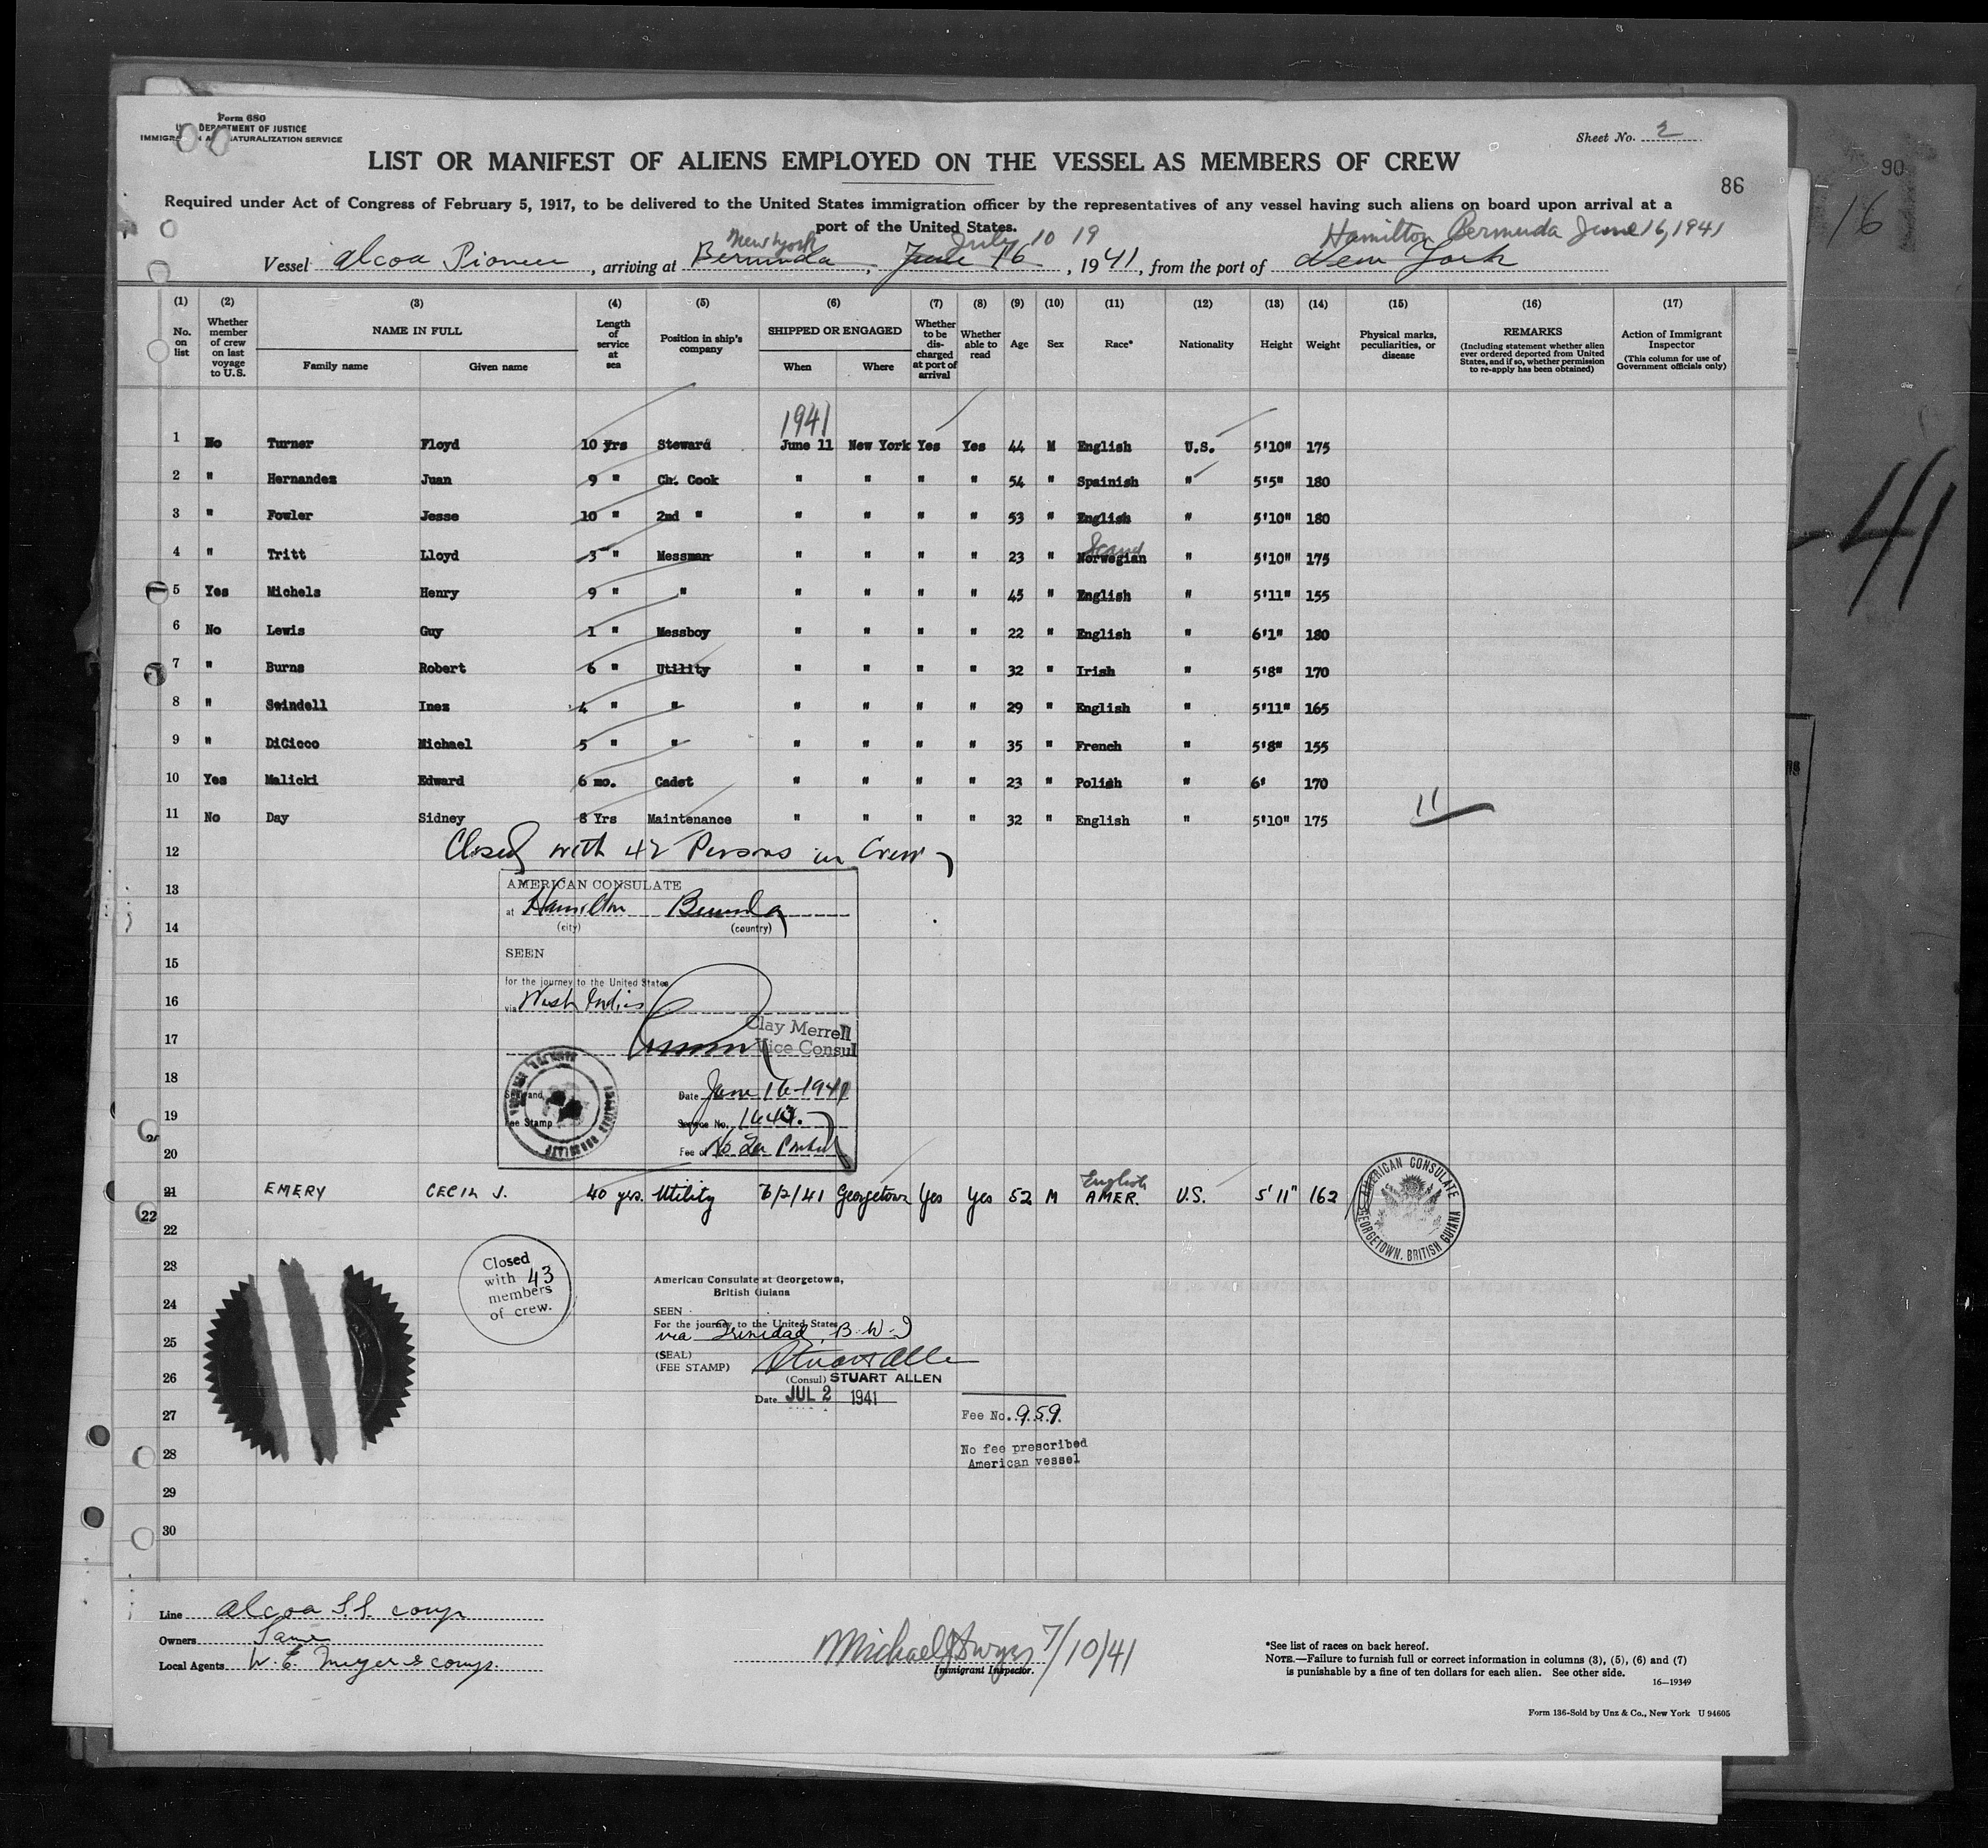 Form 680
U. S. DEPARTMENT OF JUSTICE
IMMIGRATION AND NATURALIZATION SERVICE
Sheet No. 2
LIST OR MANIFEST OF ALIENS EMPLOYED ON THE VESSEL AS MEMBERS OF CREW
90
86
16
Required under Act of Congress of February 5, 1917, to be delivered to the United States immigration officer by the representatives of any vessel having such aliens on board upon arrival at a
port of the United States.
New York July 10 19 Hamilton Bermuda June 16, 1941
Vessel Alcoa Pioneer, arriving at Bermuda, June 16, 1941, from the port of New York
(1) (2) (3) (4) (5) (6) (7) (8) (9) (10) (11) (12) (13) (14) (15) (16) (17)
No. on list
Whether member of crew on last voyage to U.S.
NAME IN FULL
Family name Given name
Length of service at sea
Position in ship's company
SHIPPED OR ENGAGED
When Where
Whether to be discharged at port of arrival
Whether able to read
Age
Sex
Race*
Nationality
Height
Weight
Physical marks, peculiarities, or disease
REMARKS
(Including statement whether alien ever ordered deported from United States, and if so, whether permission to re-apply has been obtained)
Action of Immigrant Inspector
(This column for use of Government officials only)
1941
1 No Turner Floyd 10 yrs Steward June 11 New York Yes Yes 44 M English U.S. 5'10" 175
2 " Hernandez Juan 9 " Ch. Cook " " " " 54 " Spainish " 5'5" 180
3 " Fowler Jesse 10 " 2nd " " " " " 53 " English " 5'10" 180
Scand
4 " Tritt Lloyd 3 " Messman " " " " 23 " Norwegian " 5'10" 175
5 Yes Michels Henry 9 " " " " " " 45 " English " 5'11" 155
6 No Lewis Guy 1 " Messboy " " " " 22 " English " 6'1" 180
7 " Burns Robert 6 " Utility " " " " 32 " Irish " 5'8" 170
8 " Swindell Inez 4 " " " " " " 29 " English " 5'11" 165
9 " DiCicco Michael 5 " " " " " " 35 " French " 5'8" 155
10 Yes Malicki Edward 6 mo. Cadet " " " " 23 " Polish " 6' 170
11 No Day Sidney 8 Yrs Maintenance " " " " 32 " English " 5'10" 175
11
41
12 Closed with 42 Persons in Crew
13 AMERICAN CONSULATE
at Hamilton Bermuda
14 (city) (country)
15 SEEN
for the journey to the United States
16 via West Indies
17 Clay Merrell
Vice Consul
18 Seal and Date June 16-1941
19 Fee Stamp Service No.
20 Fee
English
21 EMERY CECIL J. 40 yrs. Utility 6/2/41 Georgetown Yes Yes 52 M AMER. U.S. 5'11" 162
AMERICAN CONSULATE
GEORGETOWN, BRITISH GUIANA
22
22
23 Closed with 43 members of crew.
American Consulate at Georgetown,
British Guiana
24 SEEN
For the journey to the United States
25 via Trinidad, B.W.I
(SEAL)
(FEE STAMP) Stuart Allen
26 (Consul) STUART ALLEN
Date JUL 2 1941
27 Fee No. 959.
28 No fee prescribed
American vessel
29
30
Line Alcoa S.S. comp
Owners Same
Local Agents W. E. Meyer & comp.
Michael J Dwyer 7/10/41
Immigrant Inspector.
*See list of races on back hereof.
NOTE.—Failure to furnish full or correct information in columns (3), (5), (6) and (7)
is punishable by a fine of ten dollars for each alien. See other side.
16—19349
Form 136-Sold by Unz & Co., New York U 94605